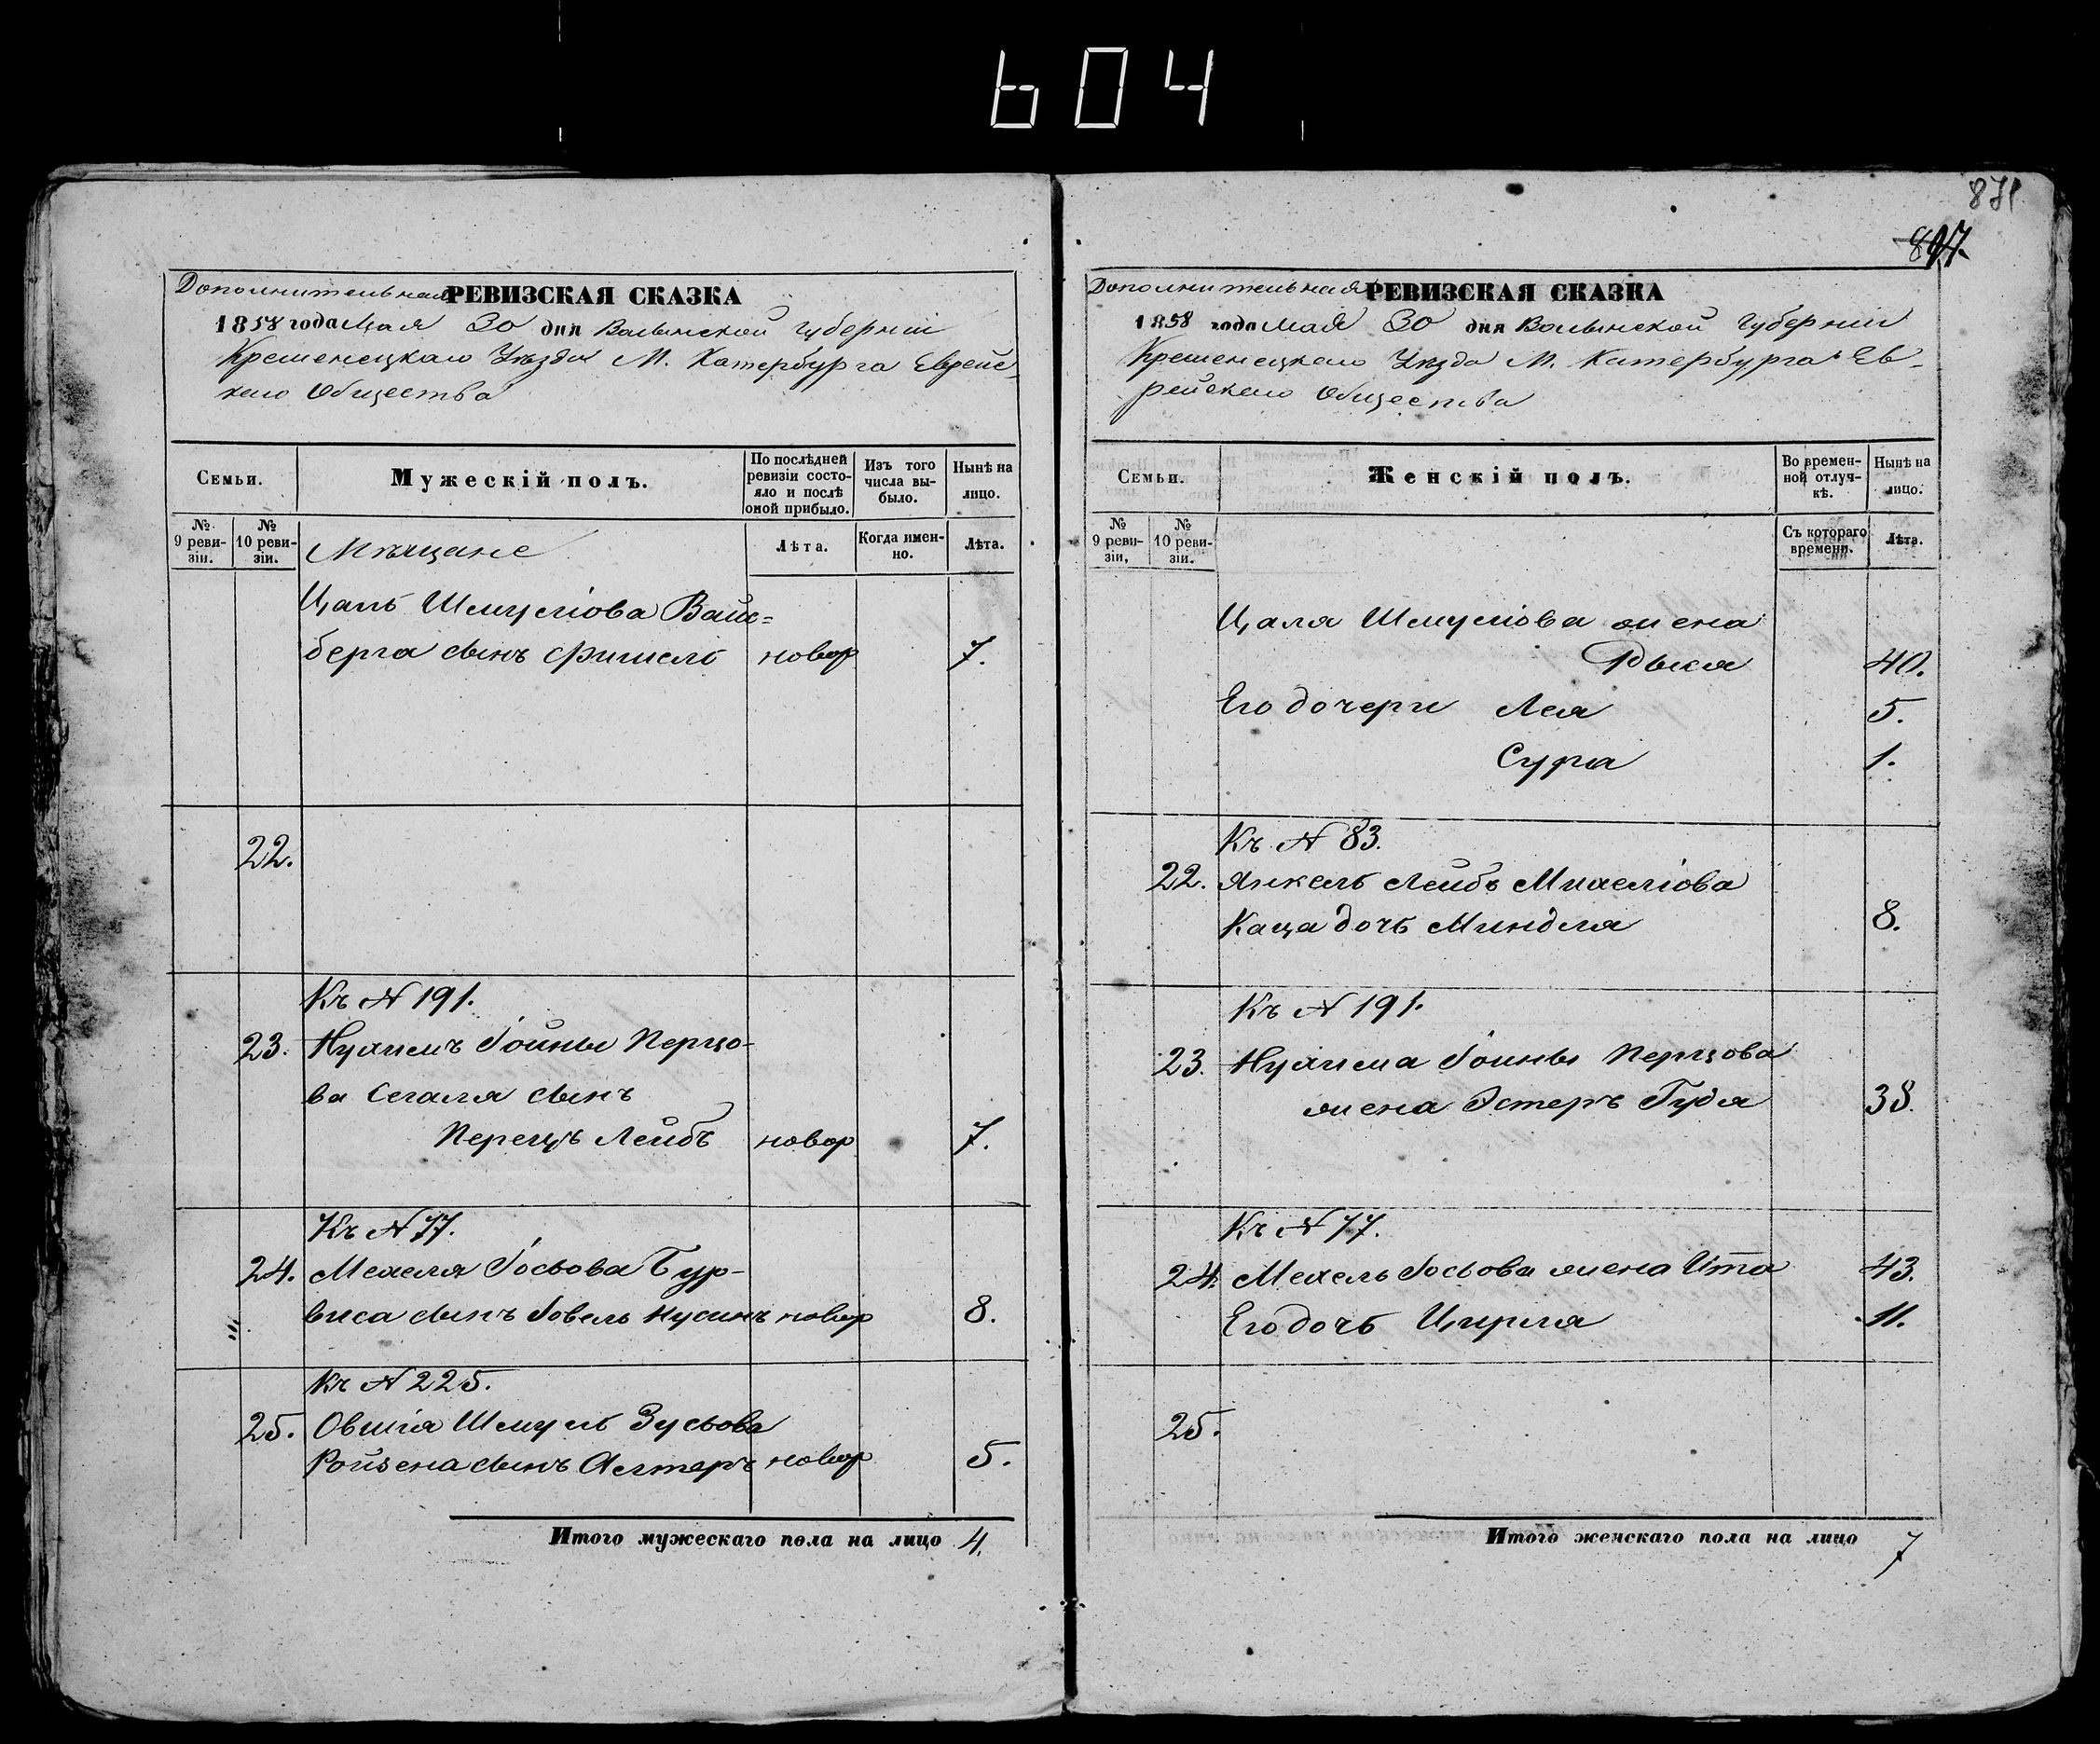 604
871
897.
Дополнительная РЕВИЗСКАЯ СКАЗКА
1858 года Мая 30 дня Волынской Губерніи
Кременецкаго Уѣзда М. Катербурга Еврейс-
каго Общества
Семьи.
Мужескій полъ.
По послѣдней ревизіи состояло и послѣ оной прибыло.
Изъ того числа выбыло.
Нынѣ на лицо.
№ 9 ревизіи.
№ 10 ревизіи.
Мѣщане
Лѣта.
Когда именно.
Лѣта.
Цаль Шмуліова Вайс=
берга сынъ Фишель новор 7.
22.
Къ № 191.
23. Нухимъ Іойны Перцо-
ва Сегаля сынъ
Перецъ Лейбъ новор 7.
Къ № 77.
24. Мехеля Іосьова Гур-
виса сынъ Іовель Нусинъ новор 8.
Къ № 225.
25. Овшія Шмуль Зусьова
Ройзена сынъ Алтеръ новор 5.
Итого мужескаго пола на лицо 4.
Дополнительная РЕВИЗСКАЯ СКАЗКА
1858 года Мая 30 дня Волынской Губерніи
Кременецкаго Уѣзда М. Катербурга Ев-
рейскаго Общества
Семьи.
Женскій полъ.
Во временной отлучкѣ.
Нынѣ на лицо.
№ 9 ревизіи,
№ 10 ревизіи.
Съ котораго времени.
Лѣта.
Цаля Шмуліова жена
Рыся 40.
Его дочери Лея 5.
Сура 1.
Къ № 83.
22. Янкель Лейбъ Михеліова
Каца дочь Миндля 8.
Къ № 191.
23. Нухима Іойны Перцова
жена Эстеръ Гудя 38.
Къ № 77.
24. Мехель Іосьова жена Ита 43.
Его дочь Цирля 11.
25.
Итого женскаго пола на лицо 7